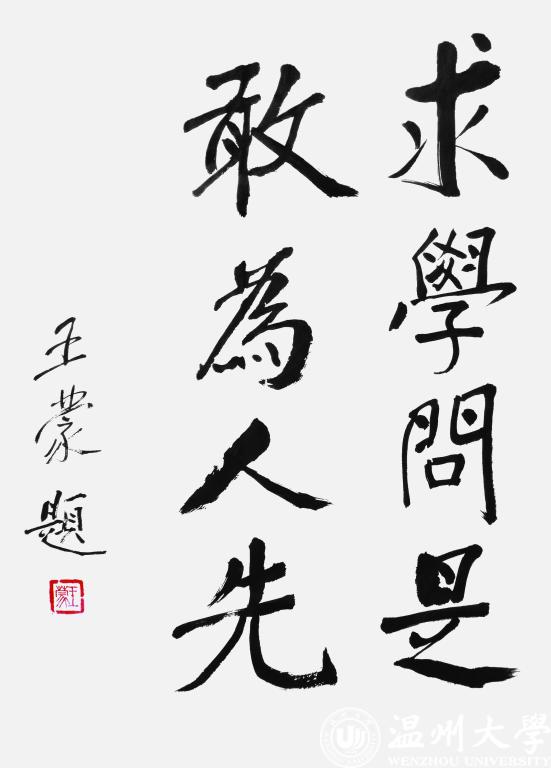 求學問是
敢為人先
王蒙題
王蒙
温州大學
WENZHOU UNIVERSITY